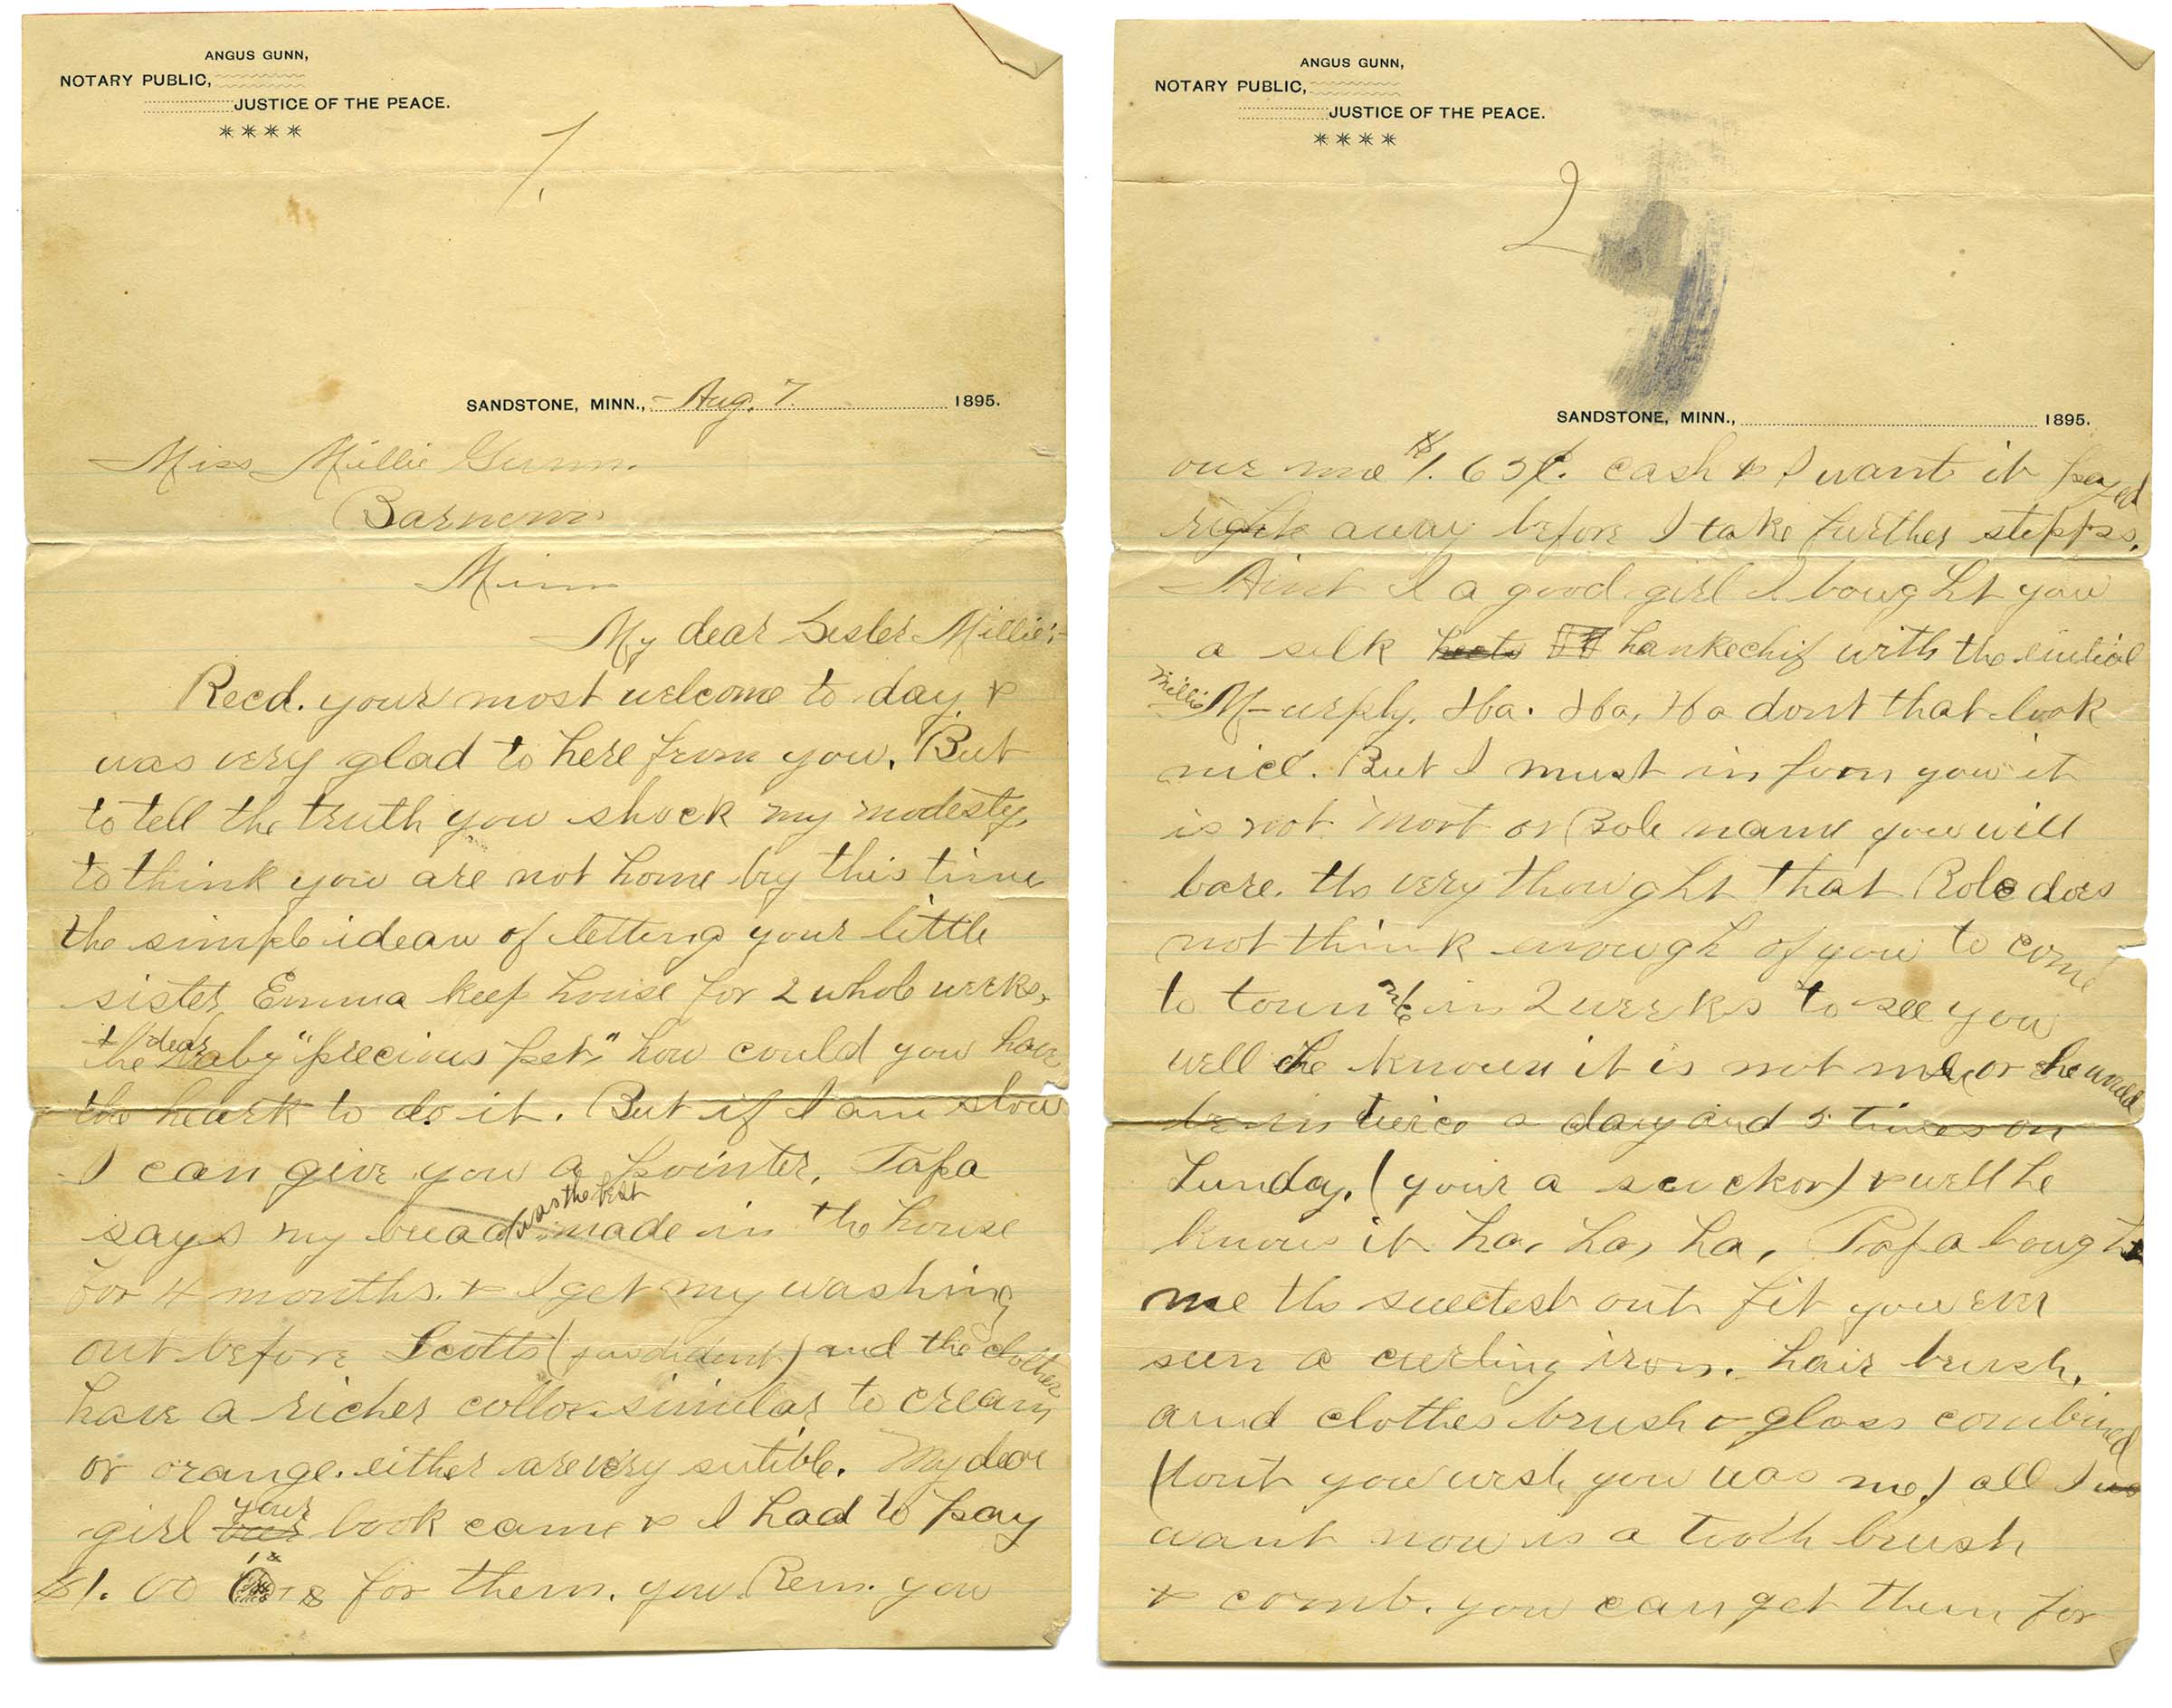 ANGUS GUNN,
NOTARY PUBLIC,
JUSTICE OF THE PEACE.
****
1.
SANDSTONE, MINN., - Aug. 7 1895.
Miss Millie Gunn.
Barnum
Minn
My dear Sister Millie:-
Recd. your most welcome to day, &
was very glad to here from you. But
to tell the truth you shock my modesty,
to think you are not home by this time
the simple idear of letting your little
sister, Emma keep house for 2 whole weeks,
+ the dear baby "precious pet" how could you have
the heart to do it. But if I am slow
I can give you a pointer, Papa
says my bread was the best made in the house
for 4 months. & I get my washing
out before Scotts ( ) and the clothes
have a richer collor similar to cream
or orange. either are very sutible. My dear
girl your book came & I had to pay
$1.00 for them. you Rem. you
ANGUS GUNN,
NOTARY PUBLIC,
JUSTICE OF THE PEACE.
****
2
SANDSTONE, MINN., 1895.
our me $1.65¢. cash & I want it payed
right away before I take further stepps.
Aint I a good girl I bought you
a silk hankechif with the initial
Millie M-urphy. Ha. Ha, Ha dont that look
nice. But I must inform you it
is not Mort or Bole name you will
bare. the very thought that Role does
not think enough of you to come
to town in 2 weeks to see you
well he knows it is not me or he would
be in twice a day and 5 times on
Sunday. (your a sucker) & well he
knows it ha, ha, ha, Papa bought
me the sweetest out fit you ever
seen a curling iron. hair brush,
and clothes brush & glass combined
(dont you wish you was me) all I
want now is a tooth brush
& comb. you can get them for